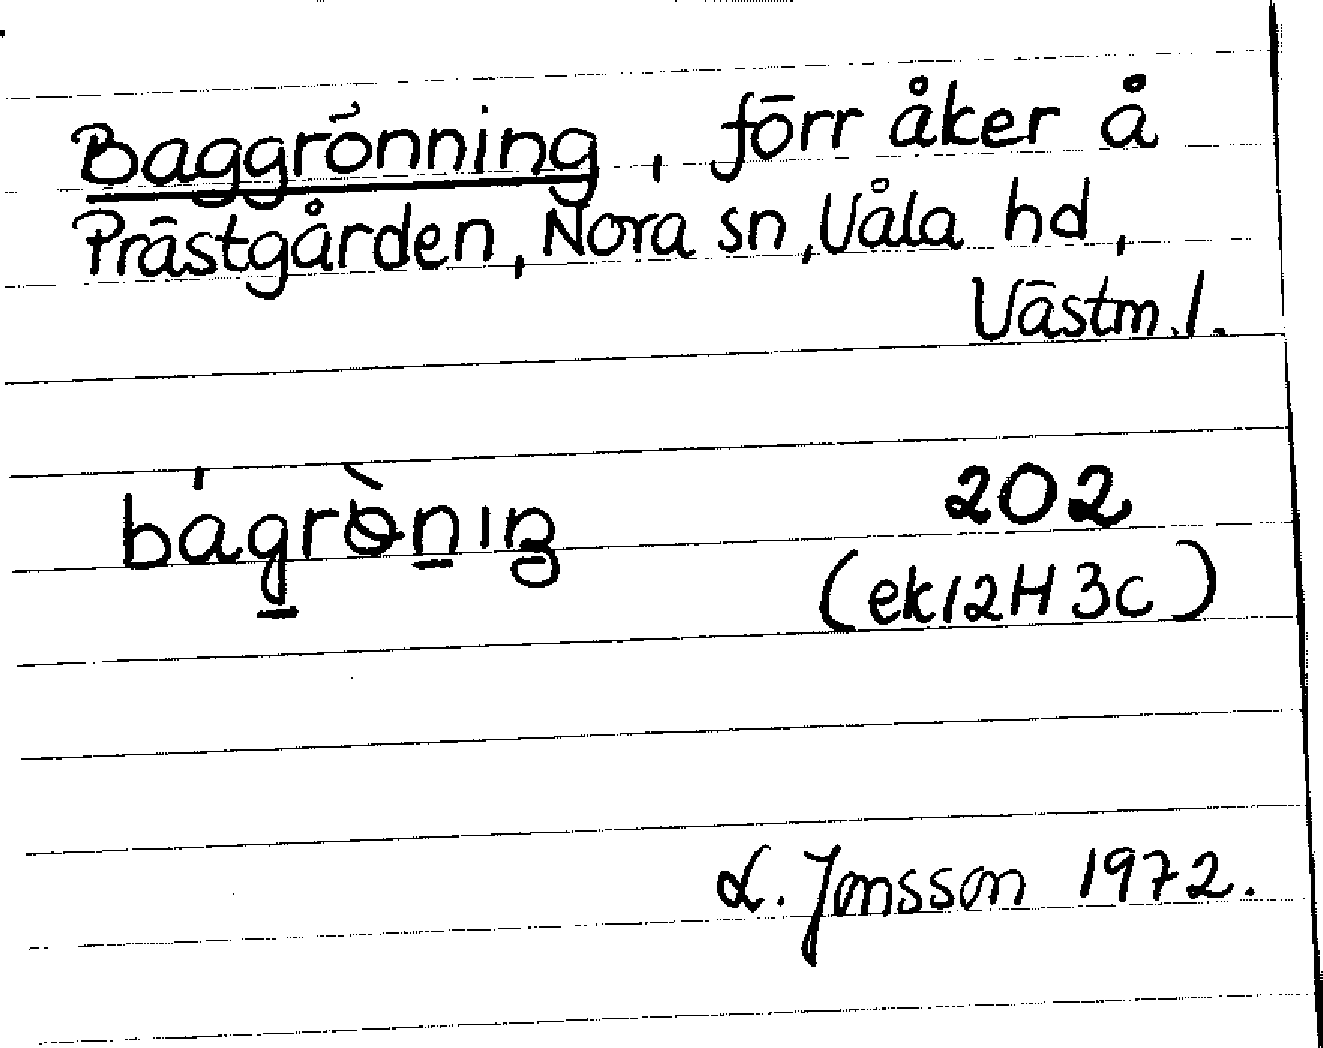 Baggrönning, förr åker å
Prästgården, Nora sn, Våla hd,
Västm.l.
202
(ek12H3c)
L. Jonsson 1972.